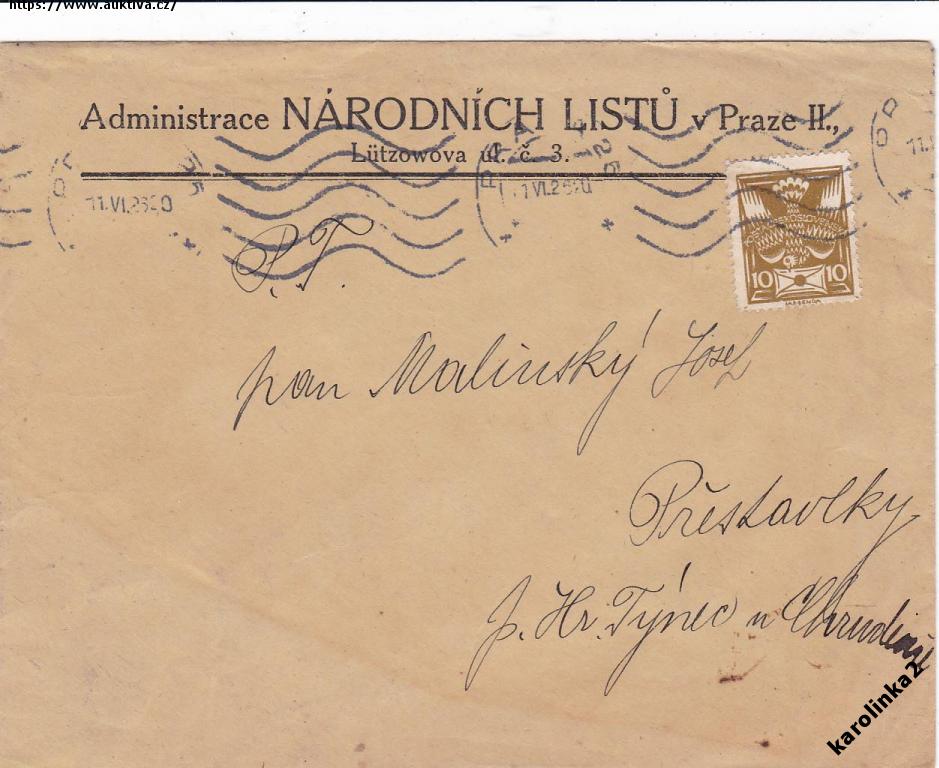 https://www.auktiva.cz/
Administrace NÁRODNÍCH LISTŮ v Praze II.,
Lützowova ul. č. 3.
11.VI.26
1 VI.26
11.
ČESKOSLOVENSKÁ
10 10
P. T.
pan Malinský Josef
Přestavlky
p. Hr. Týnec u Chrudimě
karolinka2